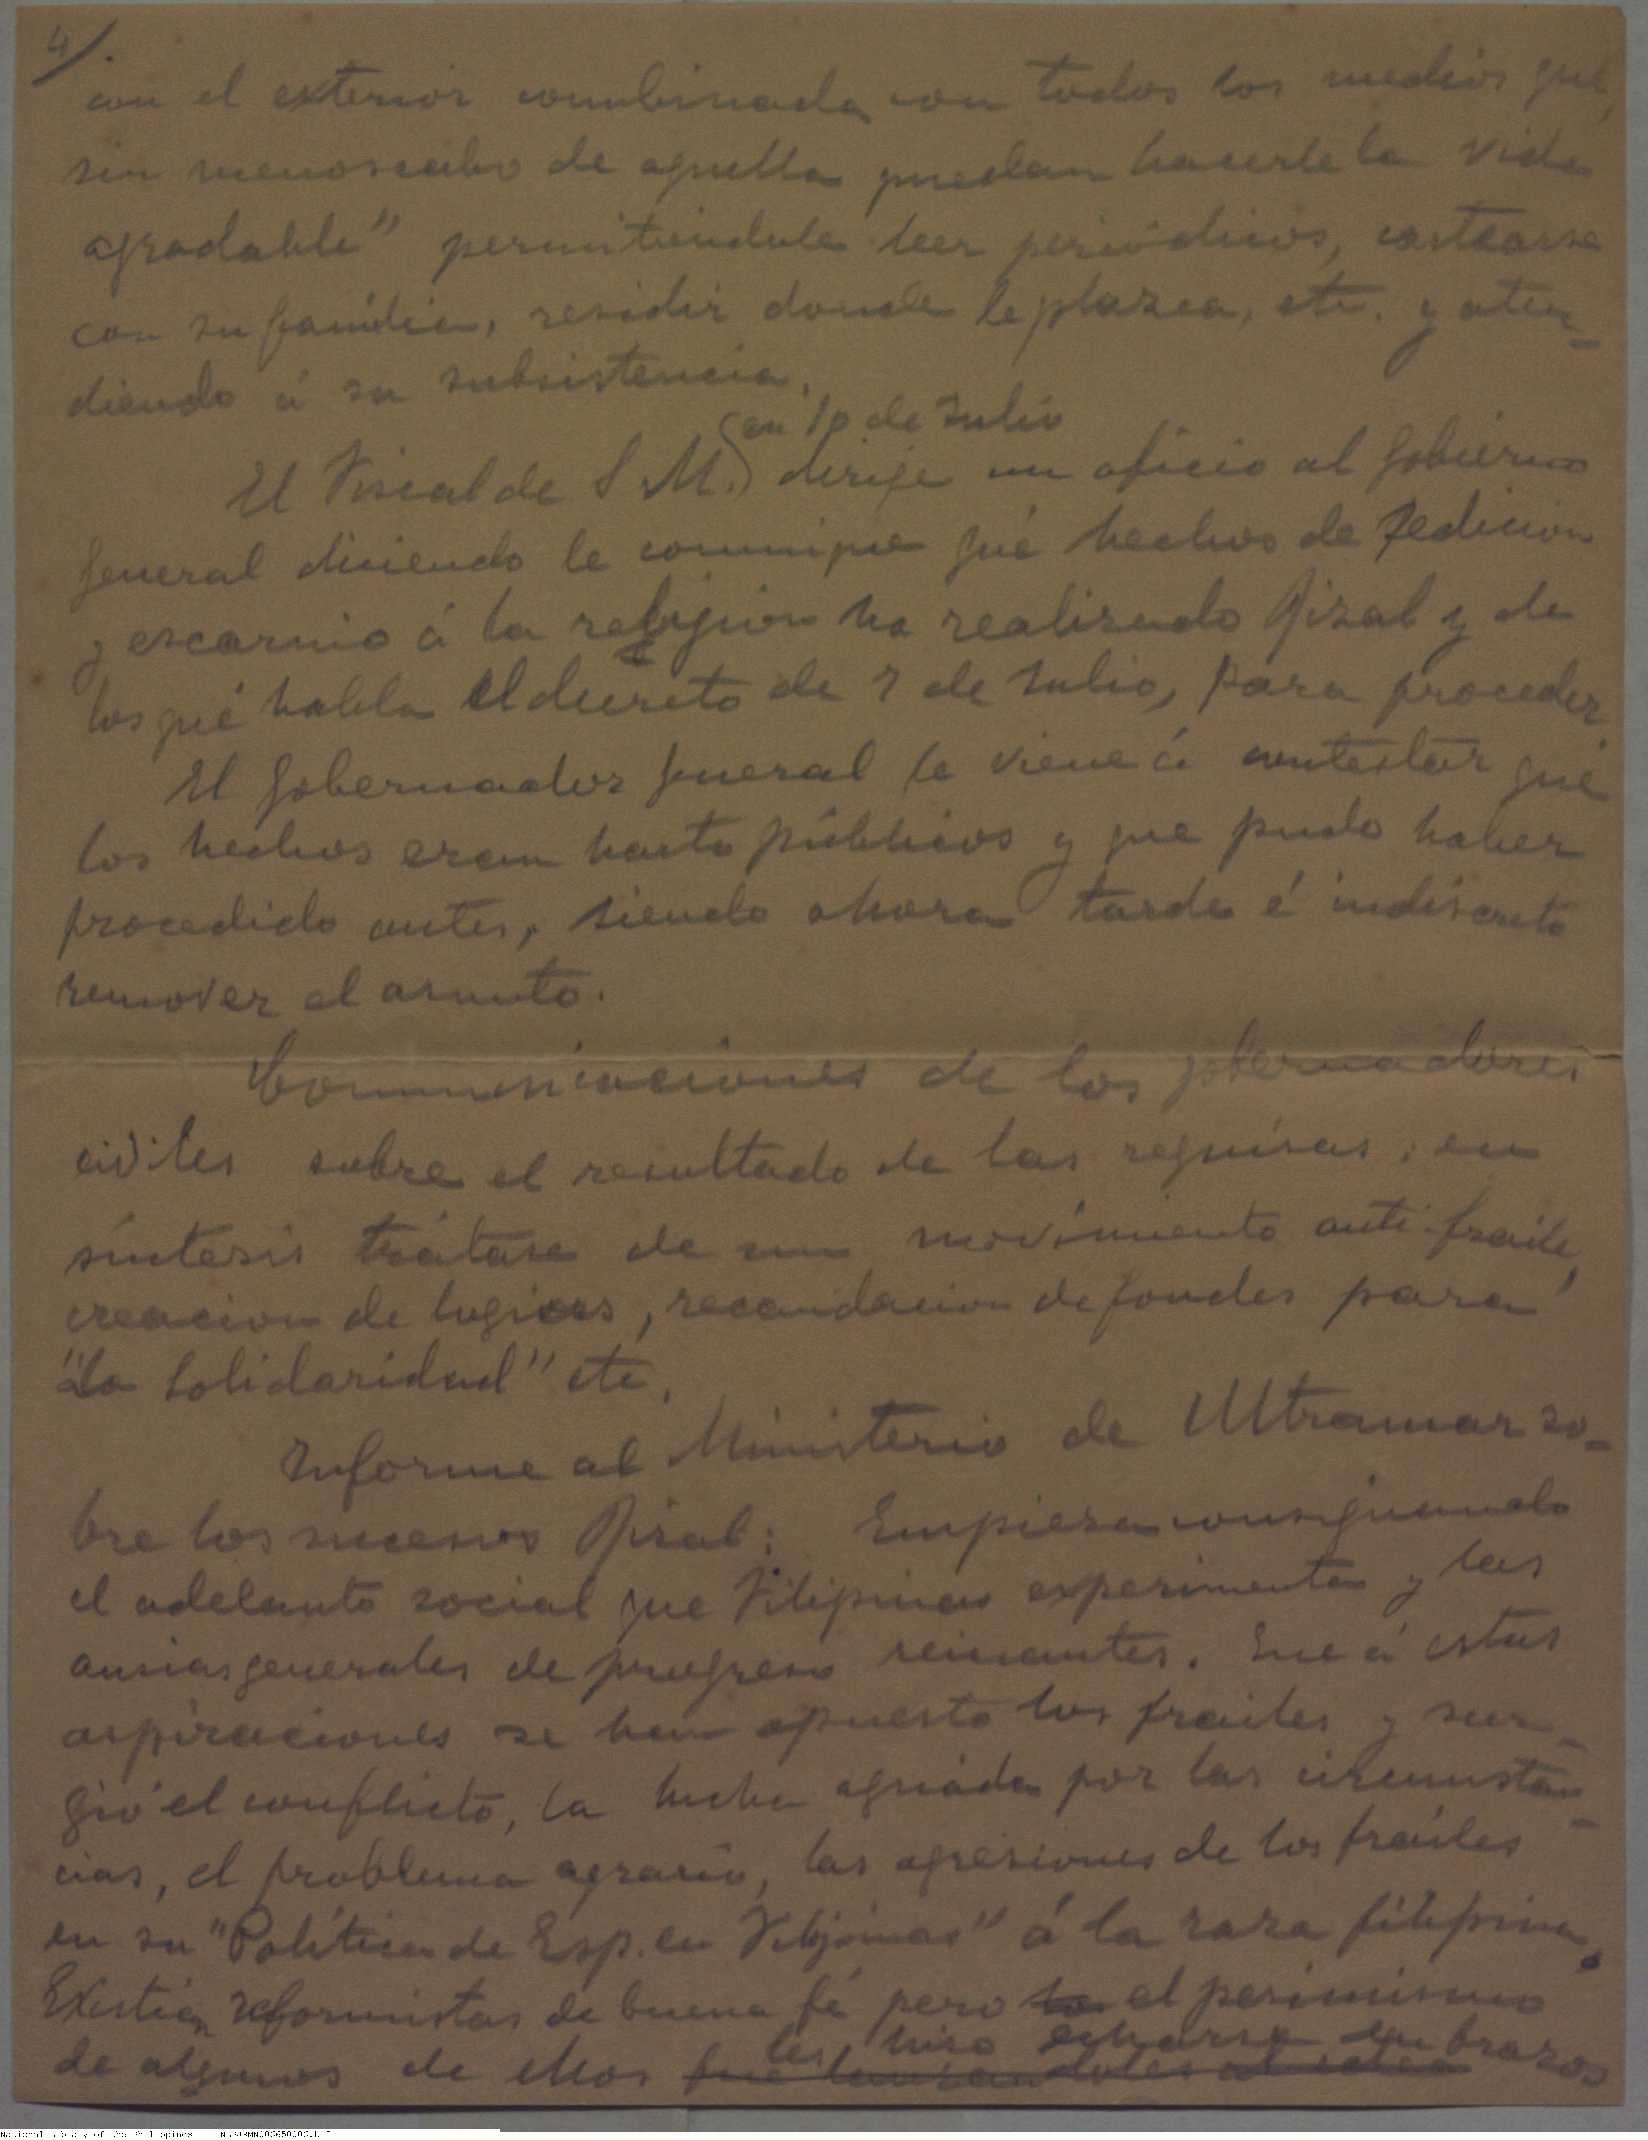 4/.
con el exterior combinada con todos los medios que,
sin menoscabo de aquella puedan hacerle la vida
agradable" permitiendole leer periódicos, cartearse
con su familia, residir donde le plazca, etc. y aten-
diendo á su subsistencia.
(en 10 de Julio
El Fiscal de S M.) dirije un oficio al Gobierno
General diciendo le comunique qué hechos de sedicion
y escarnio á la religion ha realizado Rizal y de
los qué habla el decreto de 7 de Julio, para proceder.
El Gobernador General le viene á contestar qué
los hechos eran harto públicos y que pudo haber
procedido antes, siendo ahora tarde é indiscreto
remover el asunto.
Comunicaciones de los gobernadores
civiles sobre el resultado de las requisas; en
síntesis trátase de un movimiento anti-fraile,
creacion de logias, recaudacion de fondos para
"La Solidaridad" etc.
Informe al Ministerio de Ultramar so-
bre los sucesos Rizal: Empieza consignando
el adelanto social que Filipinas experimenta y las
ansias generales de progreso reinantes. Que á estas
aspiraciones se han opuesto los frailes y sur-
gió el conflicto, la lucha agriada por las circunstan-
cias, el problema agrario, las agresiones de los frailes
en su "Política de Esp. en Filipinas" á la raza filipina.
Existian reformistas de buena fé pero el pesimismo
les hizo echarse en brazos
de algunos de ellos